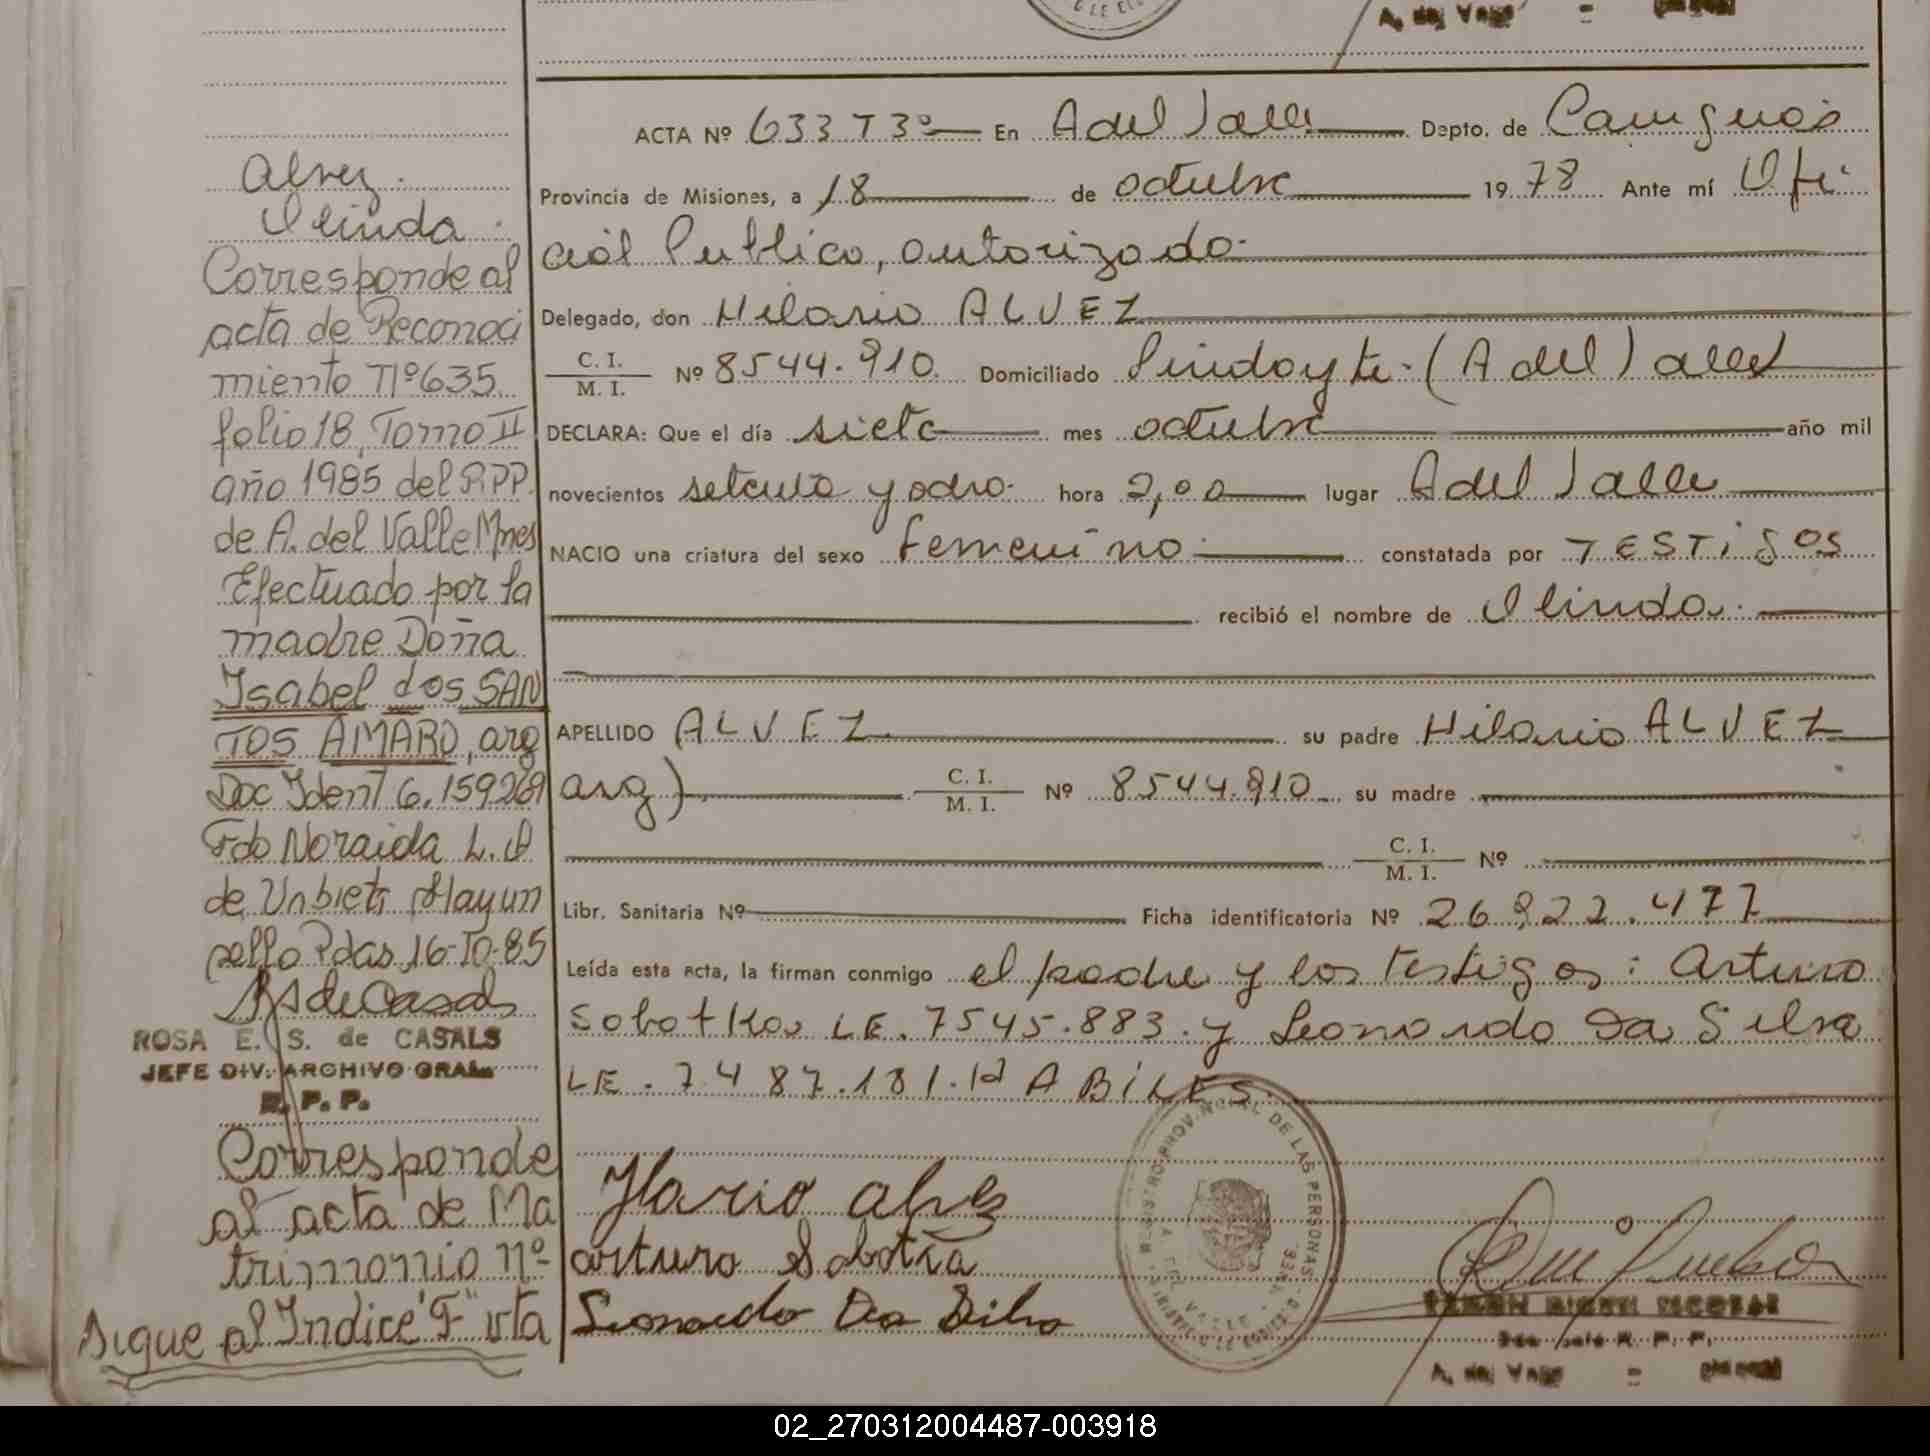 Alvez.
Olinda.
Corresponde al
acta de Reconoci
miento Nº 635
folio 18, Tomo II
año 1985 del R.P.P.
de A. del Valle Mnes
Efectuado por la
madre Doña
Isabel dos SAN
TOS AMARO, arg
Doc Ident 6.159269
Fdo Noraida L. A
de
Pdas 16-10-85
ROSA E. S. de CASALS
JEFE DIV. ARCHIVO GRAL.
R. P. P.
Corresponde
al acta de Ma
trimonio nº
sigue al Indice "F" vta
A. del Valle =
ACTA Nº 633 T3º En A del Valle Depto. de Cainguás
Provincia de Misiones, a 18 de octubre 1978 Ante mí Ofi
cial Publico, autorizado.
Delegado, don Hilario ALVEZ
C. I. / M. I. Nº 8544.910 Domiciliado Pindoyte. (A del Valle)
DECLARA: Que el día siete mes octubre año mil
novecientos setenta y ocho. hora 2,00 lugar A del Valle
NACIO una criatura del sexo femenino. constatada por TESTigos
recibió el nombre de Olinda.
APELLIDO ALVEZ su padre Hilario ALVEZ
arg) C. I. / M. I. Nº 8544.910 su madre
C. I. / M. I. Nº
Libr. Sanitaria Nº Ficha identificatoria Nº 26.922.477
Leída esta acta, la firman conmigo el padre y los testigos: Arturo
Sobotka, LE. 7545.883. y Leonardo Da Silva
LE. 7487.181. HABILES.
REGISTRO PROVINCIAL DE LAS PERSONAS
A. DEL VALLE
Ilario alvez
arturo Sobotka
Leonardo Da Silva
R. P. P.
A. del Valle =
02_270312004487-003918